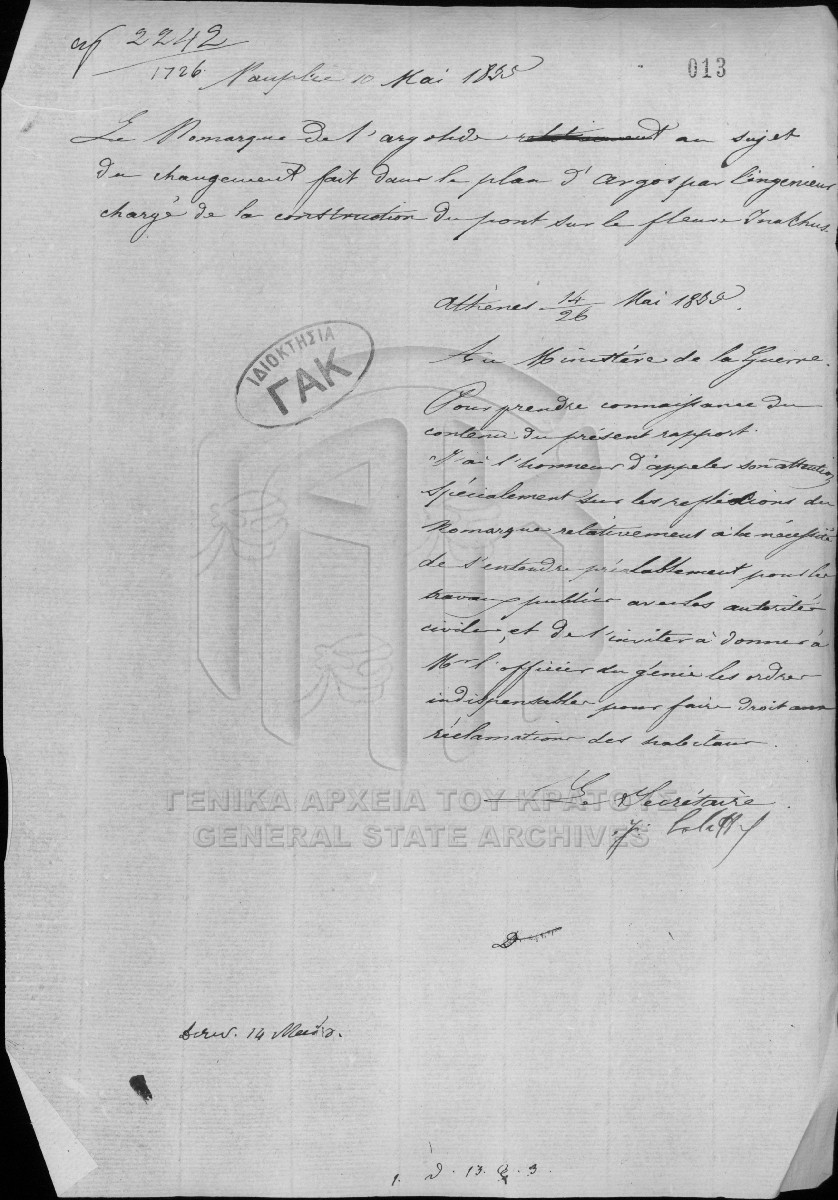 2242
1726
013
Nauplie 10 Mai 1835
Le Nomarque de l'argolide relativement au sujet
du changement fait dans le plan d'Argos par l'ingenieur
chargé de la construction du pont sur le fleuve Inachus.
Athènes 14/26 Mai 1835.
Au Ministère de la Guerre.
Pour prendre connaissance du
contenu du présent rapport.
J'ai l'honneur d'appeler son attention
spécialement sur les reflexions du
Nomarque relativement à la nécessité
de s'entendre préalablement pour les
travaux publics avec les autorités
civiles, et de l'inviter à donner à
Mr l'officier du génie les ordres
indispensables pour faire droit aux
réclamations des habitans.
Le Secrétaire
J.
ΙΔΙΟΚΤΗΣΙΑ
ΓΑΚ
ΓΕΝΙΚΑ ΑΡΧΕΙΑ ΤΟΥ ΚΡΑΤΟΥΣ
GENERAL STATE ARCHIVES
14
1. 13. 3.